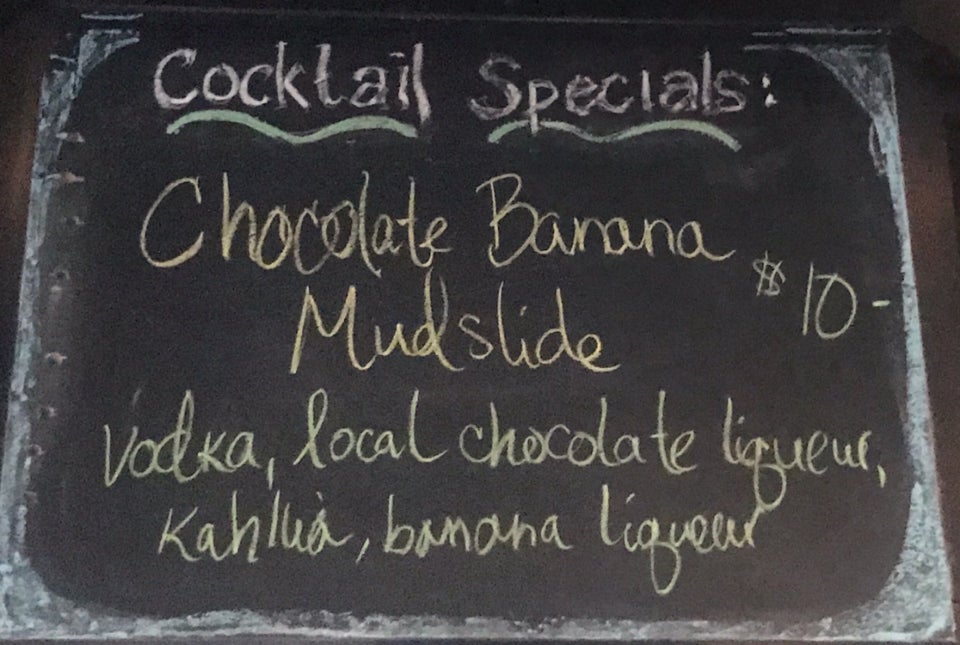 Cocktail Specials:
Chocolate Banana
Mudslide $10-
Vodka, local chocolate liqueur,
Kahlua, banana liqueur